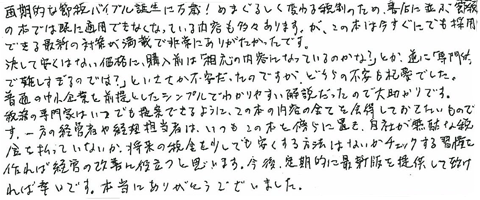 画期的な節税バイブル誕生に万歳！めまぐるしく変わる税制のため、書店に並ぶ実務
の本では既に適用できなくなっている内容も多々あります。が、この本は今すぐにでも採用
できる最新の対策が満載で非常にありがたかったです。
決して安くはない価格に、購入前は「相応の内容になっているのかな？」とか、逆に「専門的
で難しすぎるのでは？」といささか不安だったのですが、どちらの不安も杞憂でした。
普通の中小企業を前提としたシンプルでわかりやすい解説だったので大助かりです。
税務の専門家はいつでも提案できるように、この本の内容の全てを会得しておきたいもので
す。一方の経営者や経理担当者は、いつもこの本を傍らに置き、自社が無駄な税
金を払っていないか、将来の税金を少しでも安くする方法はないかチェックする習慣を
作れば経営の改善に役立つと思います。今後、定期的に最新版を提供して頂け
れば幸いです。本当にありがとうございました。